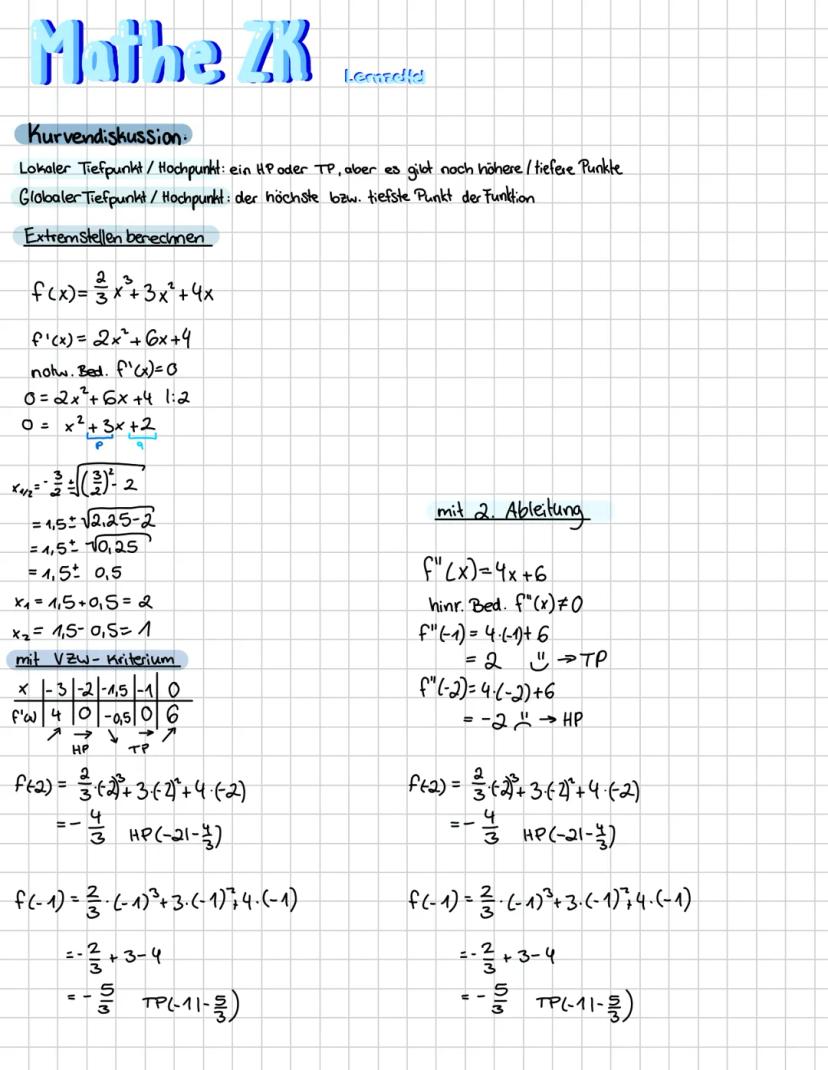 Mathe ZK Lernzettel
Kurvendiskussion:
Lokaler Tiefpunkt / Hochpunkt: ein HP oder TP, aber es gibt noch höhere / tiefere Punkte
Globaler Tiefpunkt / Hochpunkt: der höchste bzw. tiefste Punkt der Funktion
Extremstellen berechnen
f(x) = 2/3 x³ + 3x² + 4x
f'(x) = 2x² + 6x + 4
notw. Bed. f'(x) = 0
0 = 2x² + 6x + 4 |:2
0 = x² + 3x + 2
p q
x₁/₂ = -3/2 ± √((3/2)² - 2
= 1,5 ± √2,25-2
= 1,5 ± √0,25
= 1,5 ± 0,5
x₁ = 1,5 + 0,5 = 2
x₂ = 1,5 - 0,5 = 1
mit VZW-Kriterium
x | -3 | -2 | -1,5 | -1 | 0
f'(x) | 4 | 0 | -0,5 | 0 | 6
↗ → ↘ → ↗
HP TP
f(-2) = 2/3 · (-2)³ + 3 · (-2)² + 4 · (-2)
= - 4/3 HP(-2|-4/3)
f(-1) = 2/3 · (-1)³ + 3 · (-1)² + 4 · (-1)
= - 2/3 + 3 - 4
= - 5/3 TP(-1|-5/3)
mit 2. Ableitung
f''(x) = 4x + 6
hinr. Bed. f''(x) ≠ 0
f''(-1) = 4 · (-1) + 6
= 2 ☺ → TP
f''(-2) = 4 · (-2) + 6
= -2 ☹ → HP
f(-2) = 2/3 · (-2)³ + 3 · (-2)² + 4 · (-2)
= - 4/3 HP(-2|-4/3)
f(-1) = 2/3 · (-1)³ + 3 · (-1)² + 4 · (-1)
= - 2/3 + 3 - 4
= - 5/3 TP(-1|-5/3)